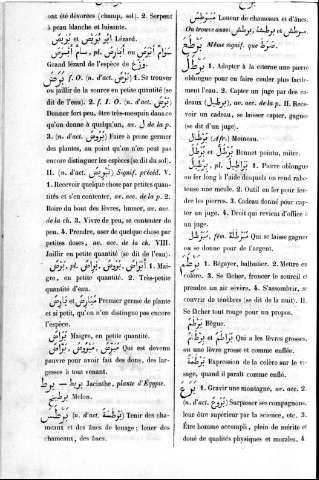 ont été dévorées (champ, sol). 2. Serpent
à peau blanche et luisante.
بُرَيْصٌ et أَبُو بُرَيْصٍ Lézard.
سَامُّ أَبْرَصَ, pl. سَوَامُّ أَبْرَصَ ou أَبَارِصُ
Grand lézard de l'espèce de وَزَغ.
بَرَضَ f. O. (n. d'act. بَرْضٌ) 1. Se trouver
ou jaillir de la source en petite quantité (se
dit de l'eau). 2. f. I. O. (n. d'act. بَرْضٌ)
Donner fort peu, être très-mesquin dans ce
qu'on donne à quelqu'un, av. لِ de la p.
3. (n. d'act. بُرُوضٌ) Faire à peine germer
des plantes, au point qu'on n'en peut pas
encore distinguer les espèces (se dit du sol).
II. (n. d'act. تَبْرِيضٌ) Signif. précéd. V.
1. Recevoir quelque chose par petites quan-
tités et s'en contenter, av. acc. de la p. 2.
Boire du bout des lèvres, humer, av. acc.
de la ch. 3. Vivre de peu, se contenter de
peu. 4. Prendre, user de quelque chose par
petites doses, av. acc. de la ch. VIII.
Jaillir en petite quantité (se dit de l'eau).
بَرْضٌ, pl. بِرَاضٌ, بُرُوضٌ, أَبْرَاضٌ 1. Mai-
gre, en petite quantité. 2. Très-petite
quantité d'eau.
بَارِضٌ Premier germe de plante
et si petit, qu'on n'en distingue pas encore
l'espèce.
بُرَاضٌ Maigre, en petite quantité.
بَرَّاضٌ, مَبْرُوضٌ Qui est devenu
pauvre pour avoir fait des dons, des lar-
gesses à tout venant.
بُرْط Jacinthe, plante d'Égypte.
Melon.
بَرْطَسَ (n. d'act. بَرْطَسَةٌ) Tenir des cha-
meaux et des ânes de louage; louer des
chameaux, des ânes.
مُبَرْطِسٌ Loueur de chameaux et d'ânes.
On trouve aussi
Même signif. que
بَرْطَلَ 1. Adapter à la citerne une pierre
oblongue pour en faire couler plus facile-
ment l'eau. 2. Capter un juge par des ca-
deaux (بِرْطِيل), av. acc. de la p. II. Rece-
voir un cadeau, se laisser capter, gagner
(se dit d'un juge).
بَرْطَالٌ (Afr.) Moineau.
بُرْطُلٌ et بُرْطُلٌّ Bonnet pointu, mitre.
بِرْطِيلٌ, pl. بَرَاطِيلُ 1. Pierre oblongue
ou fer long à l'aide desquels on rend rabo-
teuse une meule. 2. Outil en fer pour fen-
dre les pierres. 3. Cadeau donné pour cap-
ter un juge. 4. Droit que revient d'office à
un juge.
مُبَرْطَلٌ, fém. مُبَرْطَلَةٌ Qui se laisse gagner
ou se donne pour de l'argent.
بَرْطَمَ 1. Bégayer, balbutier. 2. Mettre en
colère. 3. Se fâcher, froncer le sourcil et
prendre un air sévère. 4. S'assombrir, se
couvrir de ténèbres (se dit de la nuit). II.
Se fâcher tout rouge pour un propos.
Bègue.
بُرْطُمٌ et بِرْطَامٌ Qui a les lèvres grosses,
ou une lèvre grosse et comme enflée.
بَرْطَمَةٌ Expression de la colère sur le vi-
sage, quand il paraît comme enflé.
بَرَعَ 1. Gravir une montagne, av. acc. 2.
(n. d'act. بُرُوعٌ) Surpasser ses compagnons,
leur être supérieur par la science, etc. 3.
Être homme accompli, plein de mérite et
doué de qualités physiques et morales. 4.